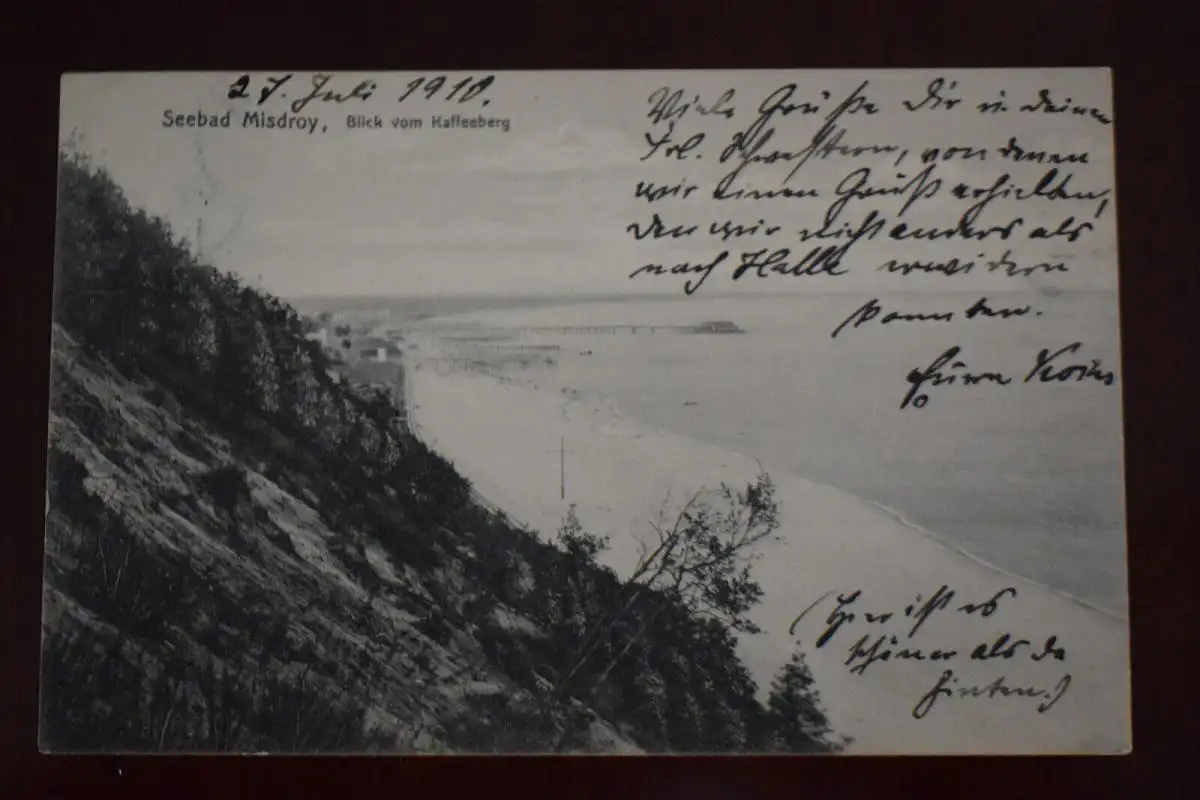 27. Juli 1910.
Seebad Misdroy, Blick vom Kaffeeberg
Viele Grüße Dir u deinen
Frl. Schwestern, von denen
wir einen Gruß erhielten,
den wir nicht anders als
nach Halle erwidern
konnten.
(Hier ist es
schöner als da
hinten.)